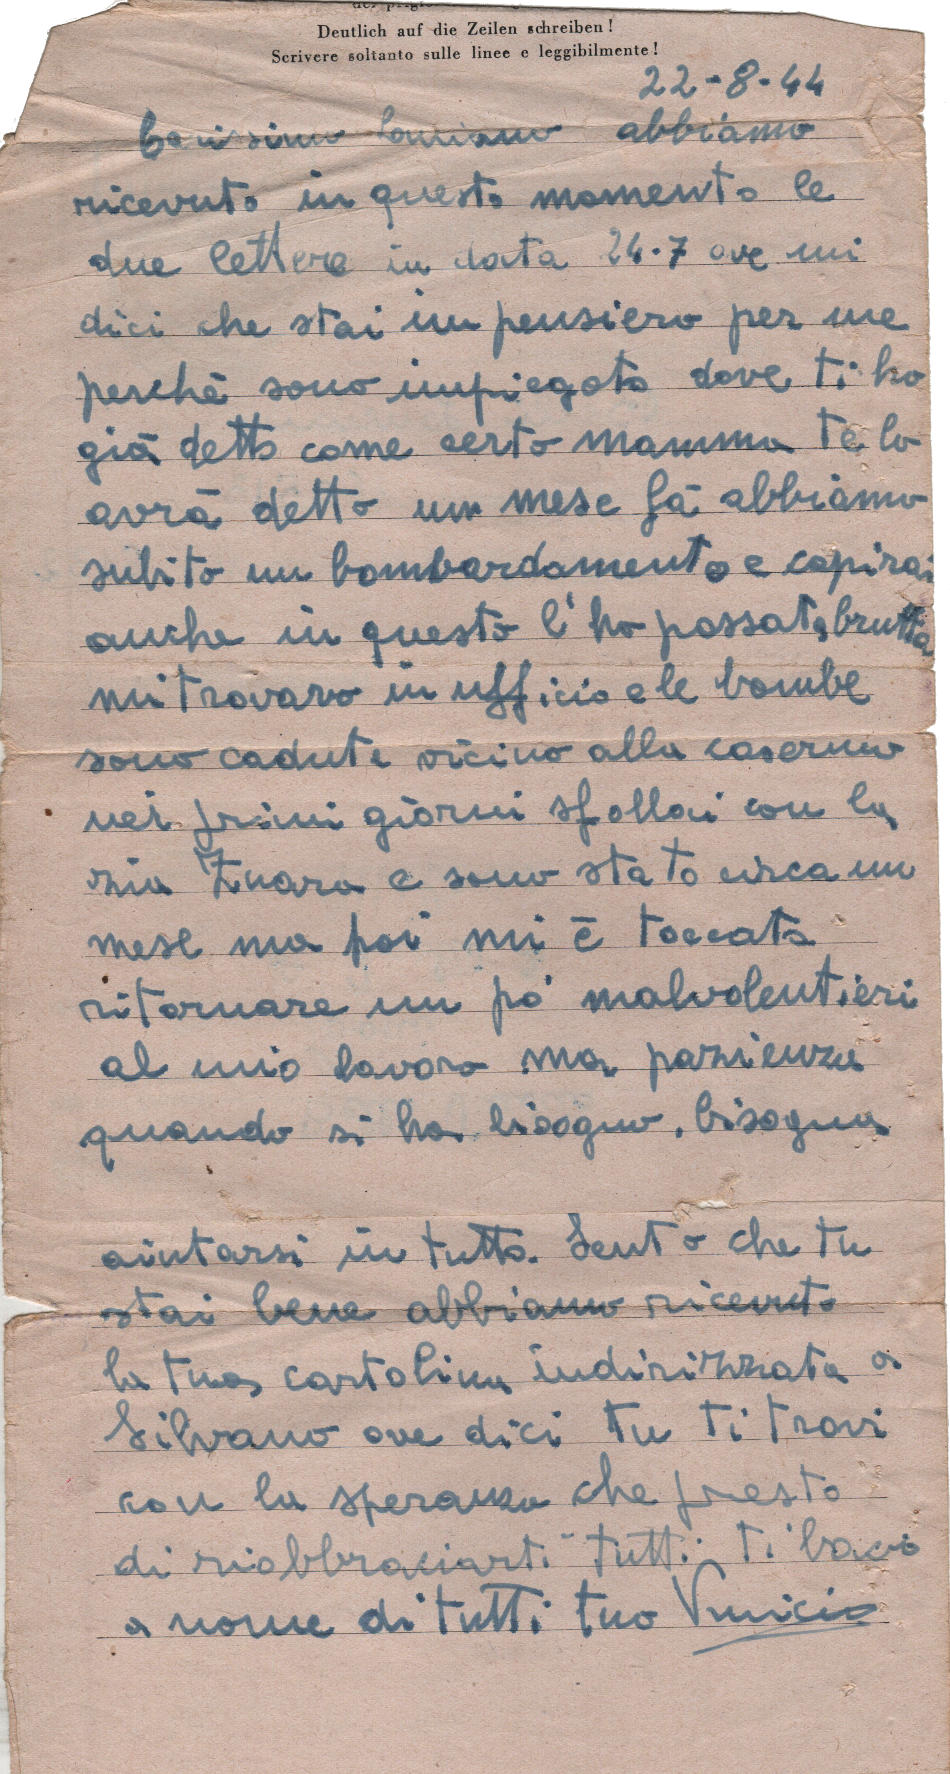 Deutlich auf die Zeilen schreiben!
Scrivere soltanto sulle linee e leggibilmente!
22-8-44
Carissimo abbiamo
ricevuto in questo momento le
due lettere in data 24-7 ove mi
dici che stai in pensiero per me
perchè sono impiegato dove ti ho
già detto come certo mamma te lo
avrà detto un mese fà abbiamo
subito un bombardamento e capirai
anche in questo l'ho passata brutta
mi trovavo in ufficio e le bombe
sono cadute vicino alla caserma
nei primi giorni sfollai con la
zia e sono stato circa un
mese ma poi mi è toccato
ritornare un pò malvolentieri
al mio lavoro ma pazienza
quando si ha bisogno, bisogna
aiutarsi in tutto. Sento che tu
stai bene abbiamo ricevuto
la tua cartolina indirizzata a
Silvano ove dici tu ti trovi
con la speranza che presto
di riabbracciarti tutti ti bacio
a nome di tutti tuo Vinicio